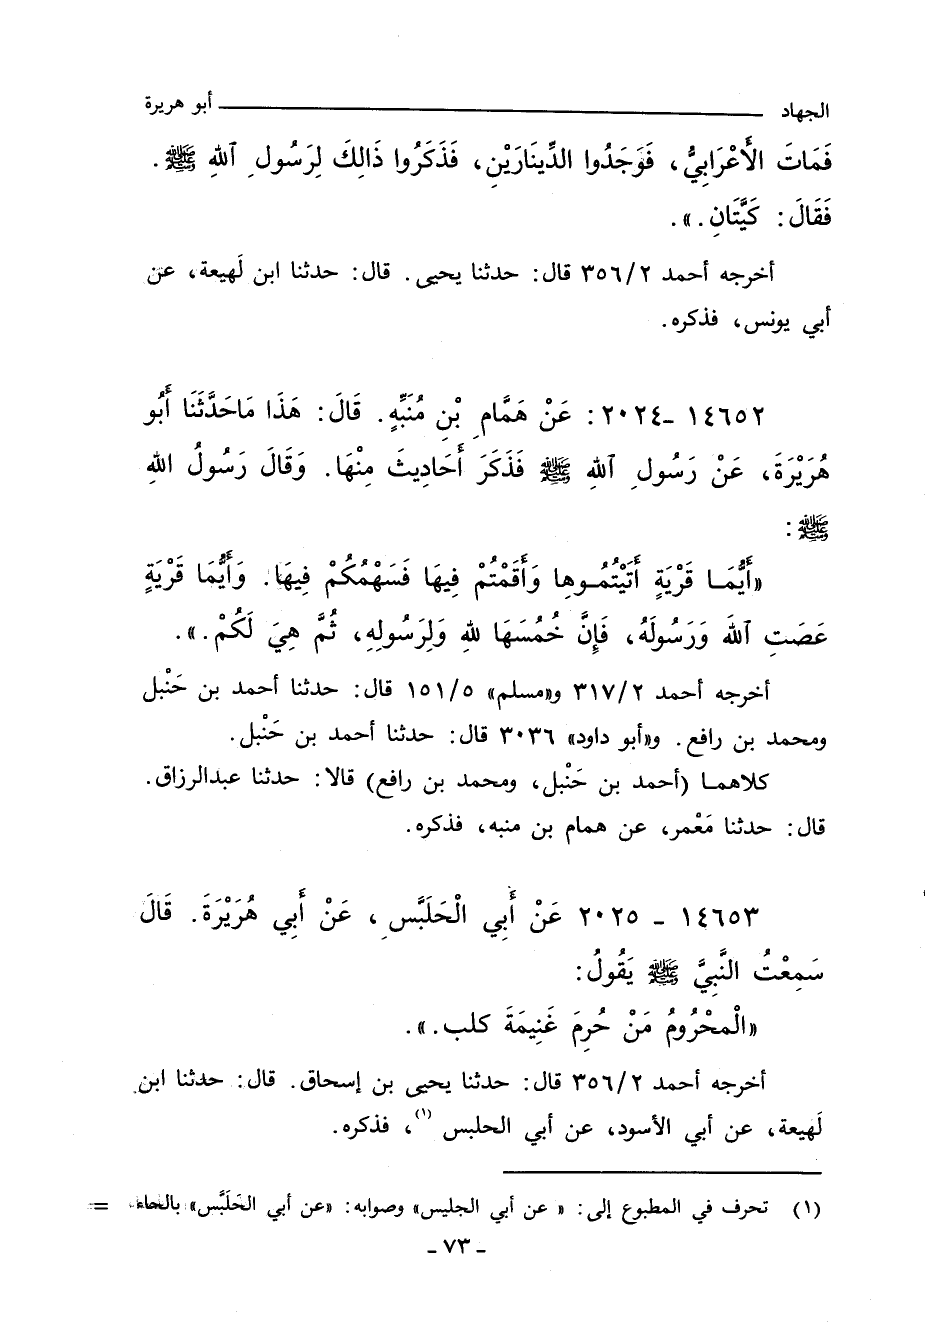 الجهاد ــــــــــ أبو هريرة
فَمَاتَ الأَعْرَابِيُّ، فَوَجَدُوا الدِّينَارَيْنِ، فَذَكَرُوا ذَالِكَ لِرَسُولِ ٱللهِ ﷺ.
فَقَالَ: كَيَّتَانِ.».
أخرجه أحمد ٣٥٦/٢ قال: حدثنا يحيى. قال: حدثنا ابن لَهيعة، عن
أبي يونس، فذكره.
١٤٦٥٢ -٢٠٢٤: عَنْ هَمَّامِ بْنِ مُنَبِّهٍ. قَالَ: هَذَا مَاحَدَّثَنَا أَبُو
هُرَيْرَةَ، عَنْ رَسُولِ ٱللهِ ﷺ فَذَكَرَ أَحَادِيثَ مِنْهَا. وَقَالَ رَسُولُ اللهِ
ﷺ:
«أَيُّمَا قَرْيَةٍ أَتَيْتُمُوها وَأَقَمْتُمْ فِيهَا فَسَهْمُكُمْ فِيهَا. وَأَيُّمَا قَرْيَةٍ
عَصَتِ ٱللهَ وَرَسُولَهُ، فَإِنَّ خُمُسَهَا للهِ وَلِرَسُولِهِ، ثُمَّ هِيَ لَكُمْ.».
أخرجه أحمد ٣١٧/٢ و«مسلم» ١٥١/٥ قال: حدثنا أحمد بن حَنْبل
ومحمد بن رافع. و«أبو داود» ٣٠٣٦ قال: حدثنا أحمد بن حَنْبل.
كلاهما (أحمد بن حَنْبل، ومحمد بن رافع) قالا: حدثنا عبدالرزاق.
قال: حدثنا مَعْمر، عن همام بن منبه، فذكره.
١٤٦٥٣ - ٢٠٢٥ عَنْ أَبِي الْحَلَبَّسِ، عَنْ أَبِي هُرَيْرَةَ. قَالَ
سَمِعْتُ النَّبِيَّ ﷺ يَقُولُ:
«الْمَحْرُومُ مَنْ حُرِمَ غَنِيمَةَ كلب.».
أخرجه أحمد ٣٥٦/٢ قال: حدثنا يحيى بن إسحاق. قال: حدثنا ابن
لَهيعة، عن أبي الأسود، عن أبي الحلبس (١)، فذكره.
(١) تحرف في المطبوع إلى: « عن أبي الجليس» وصوابه: «عن أبي الحَلَبَّس» بالحاء =
- ٧٣ -